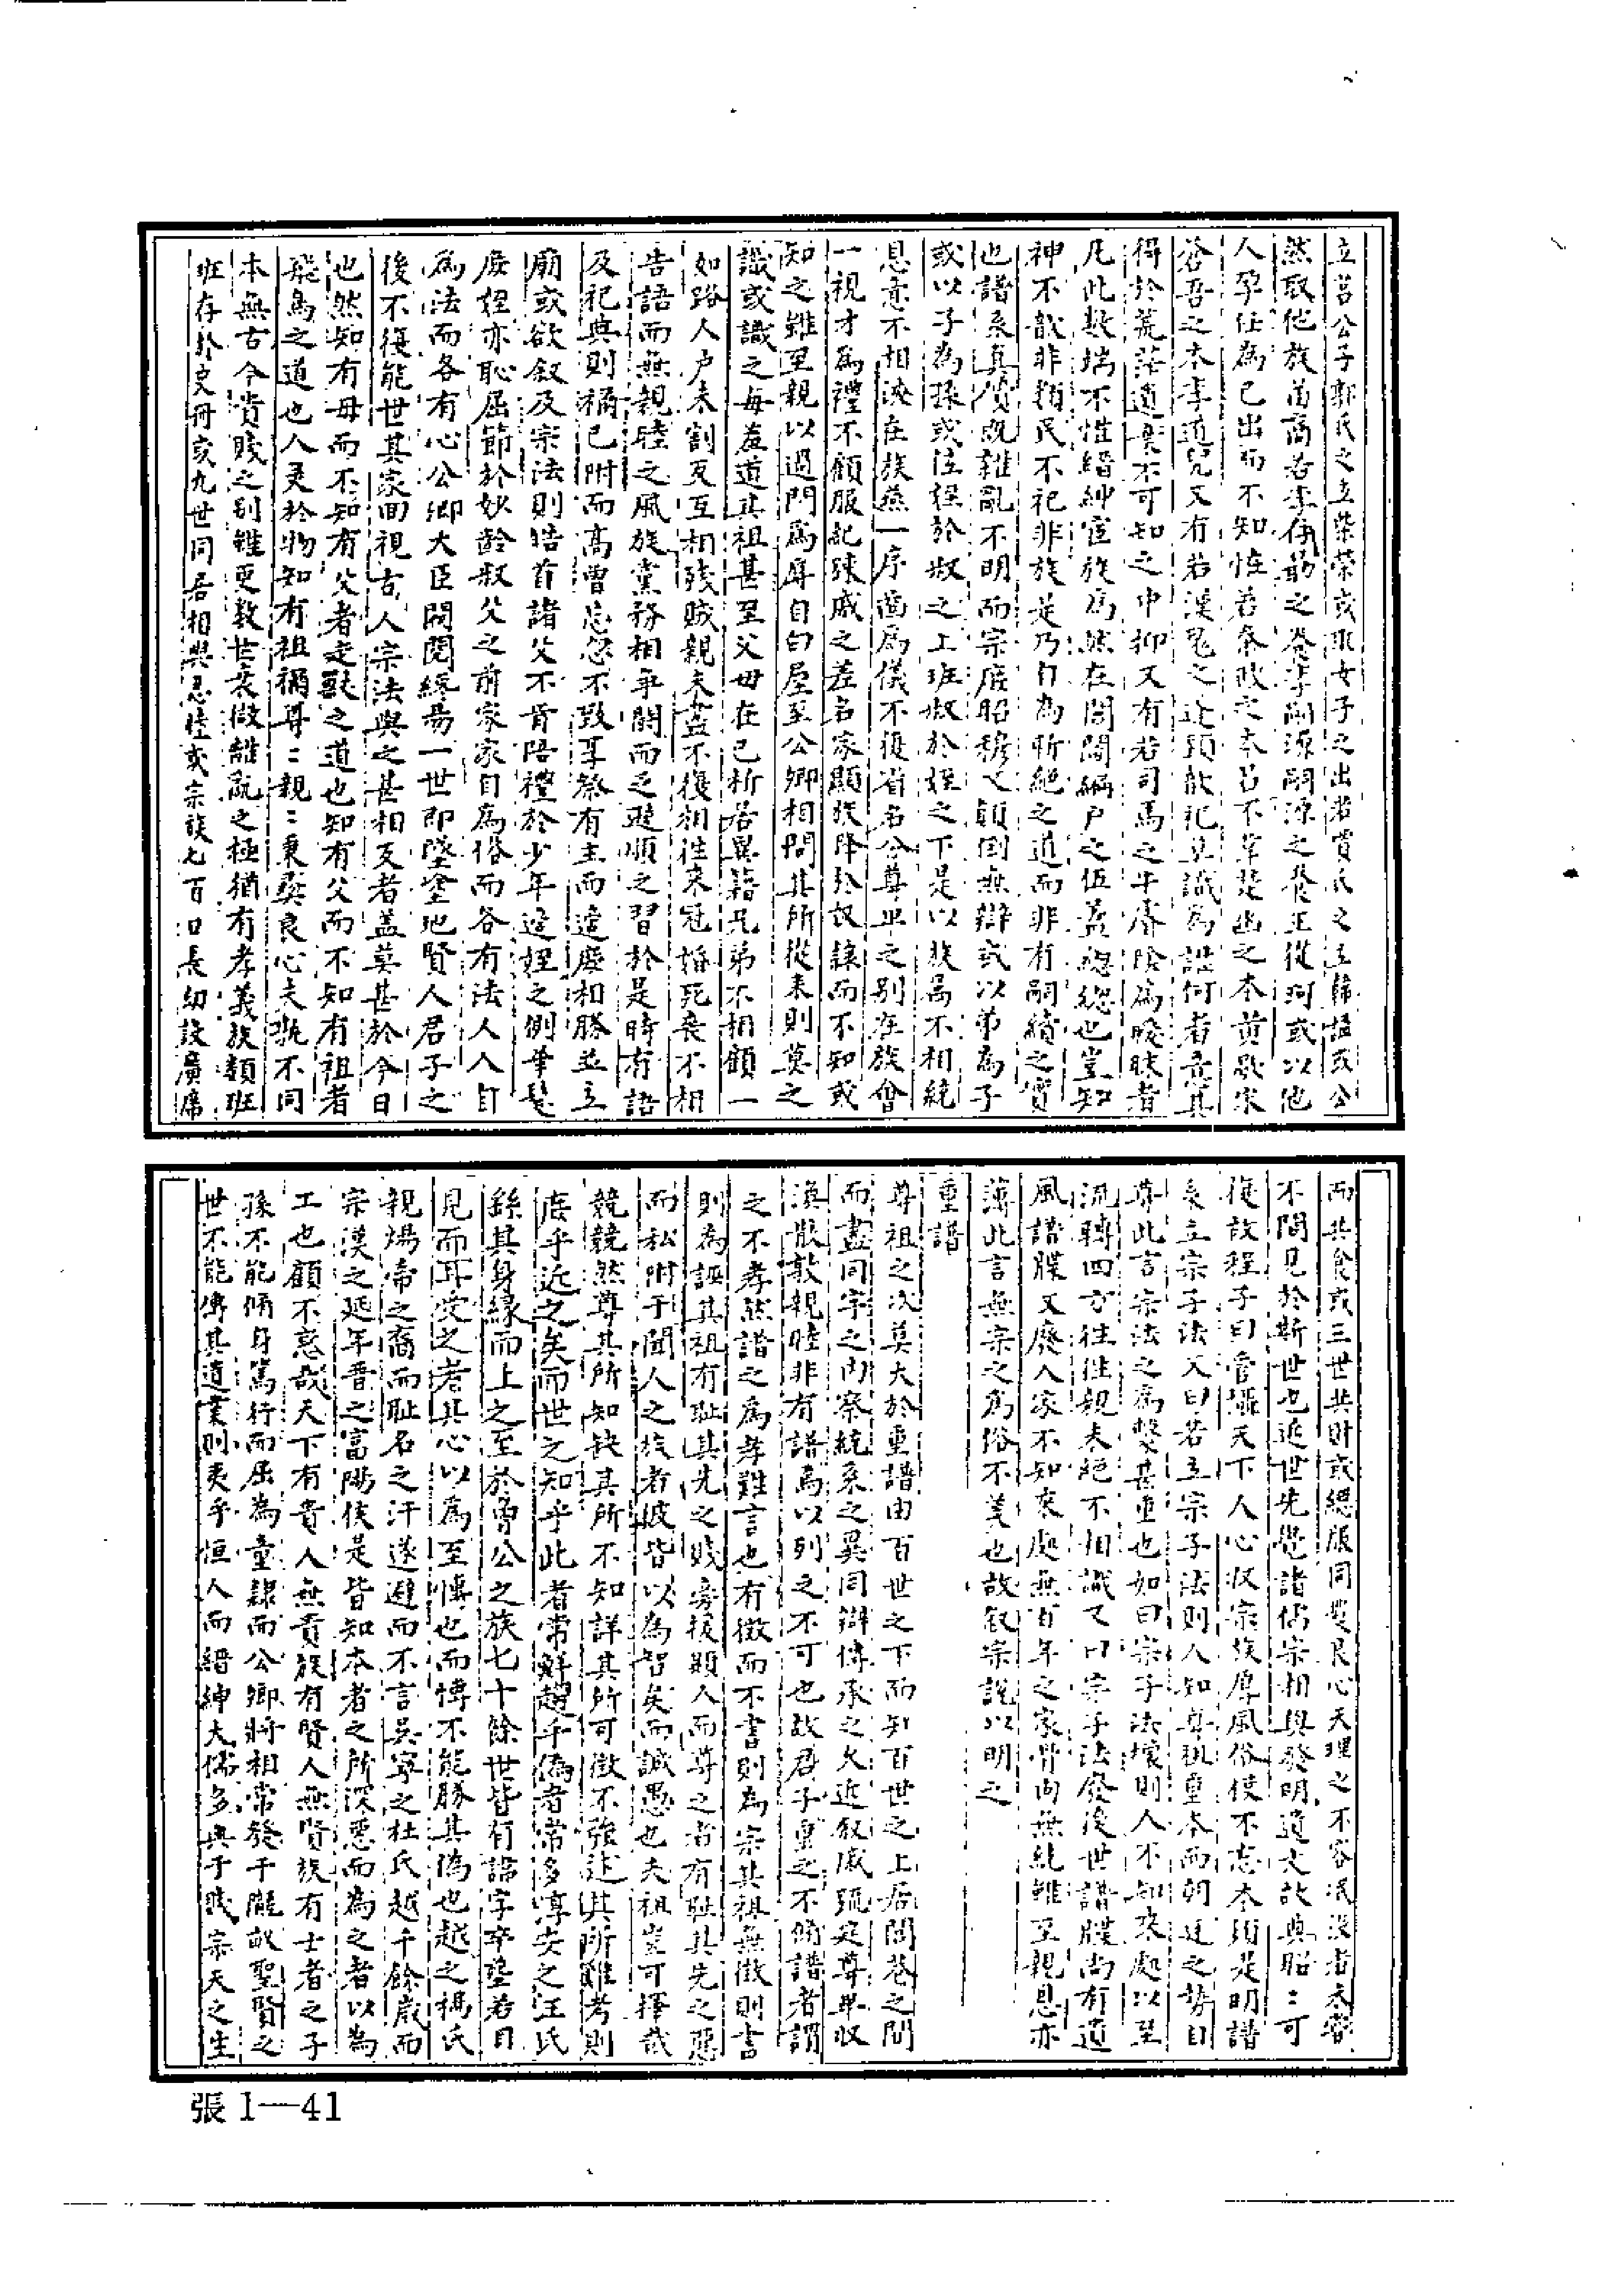 立莒公子鄭氏之立柴榮或取女子之出若賈氏之立韓謐或公
然取他族苗裔若李存勗之養李嗣源嗣源之養王從珂或以他
人孕任為己出而不知恠若秦政之本呂不韋楚幽之本黃歇宋
蒼吾之本李道兒又有若漢冤之
得於荒茫遺棄不可知之中抑又有若司馬之牛濳陰為曖昧者
凡此數端不惟縉紳宦族為然在閭閻編户之伍盖總總也豈知
神不歆非類民不祀非族是乃自為斬絕之道而非有嗣續之實
也譜系真贋既雜亂不明而宗庶昭穆又顛倒無辯或以弟為子
或以子為孫或位姪於叔之上班叔於姪之下是以族属不相統
恩意不相浹在族燕一序齒為儀不復省名分尊卑之别在族會
一視才為禮不顧服紀踈戚之差名家顯族降於奴隷而不知或
知之雖至親以過門為辱自白屋至公卿相問其所從来則莫之
識或識之每羞道其祖甚至父母在已析居異籍兄弟不相顧一
如路人户未割反互相殘賊親未盡不復相往来冠婚死喪不相
告語而無親睦之風族黨務相爭鬪而乏遜順之習於是時有語
及祀典則禰已附而高曽忽忽不致享祭有主而適庶相勝並立
廟或欲叙及宗法則皓首諸父不肯陪禮於少年適姪之側華髮
庶姪亦恥屈節於妙齡叔父之前家家自為俗而各有法人人自
為法而各有心公卿大臣閥閱終易一世即墜塗地賢人君子之
後不復能世其家囬視古人宗法與之甚相反者盖莫甚於今日
也然知有母而不知有父者走獸之道也知有父而不知有祖者
飛鳥之道也人灵於物知有祖禰尊﹕親﹕秉彜良心夫孰不同
本無古今貴賤之别雖更敎世衰微離亂之極猶有孝義族類班
班存於史冊或九世同居相與忍睦或宗族七百口長幼設廣席
而共食或三世共財或緦服同爨良心天理之不容泯没者未甞
不間見於斯世也近世先覺諸儒宗相與發明遺文故典昭﹕可
復故程子曰管攝天下人心収宗族厚風俗使不忘本須是明譜
系立宗子法又曰若立宗子法則人知尊祖重本而朝廷之勢自
尊此言宗法之為繫甚重也如曰宗子法壞則人不知来處以至
流轉四方往往親未絕不相識又曰宗子法廢後世譜牒尚有遺
風譜牒又廢人家不知來處無百年之家骨肉無統雖至親恩亦
薄此言無宗之為俗不羙也故叙宗說以明之
重譜
尊祖之次莫大於重譜由百世之下而知百世之上居閭巷之間
而盡同宇之内察統系之異同辯傳承之久近叙戚疏定尊卑収
渙散敦親睦非有譜焉以列之不可也故君子重之不脩譜者謂
之不孝然譜之為孝難言也有徵而不書則為宗其祖無徵則書
則為誣其祖有耻其先之賤旁援顯人而尊之者有耻其先之惡
而私附于聞人之族者彼皆以為智矣而誠愚也夫祖豈可擇哉
兢兢然尊其所知缺其所不知詳其所可徵不強述其所難考則
庶乎近之矣而世之知乎此者常鮮趨乎偽者常多淳安之汪氏
繇其身緣而上之至於魯公之族七十餘世皆有諱字卒塟若目
見而耳受之者其心以為至慱也而慱不能勝其偽也越之楊氏
親煬帝之裔而耻名之汗遂避而不言吳寧之杜氏越千餘歲而
宗漢之延年晋之富陽侯是皆知本者之所深惡而為之者以為
工也顧不惑哉天下有貴人無貴族有賢人無賢族有士者之子
孫不能脩身篤行而屈為童隸而公卿將相常發于隴畝聖賢之
世不能傳其道業則夷乎恒人而縉紳大儒多興于賤宗天之生
張 1—41